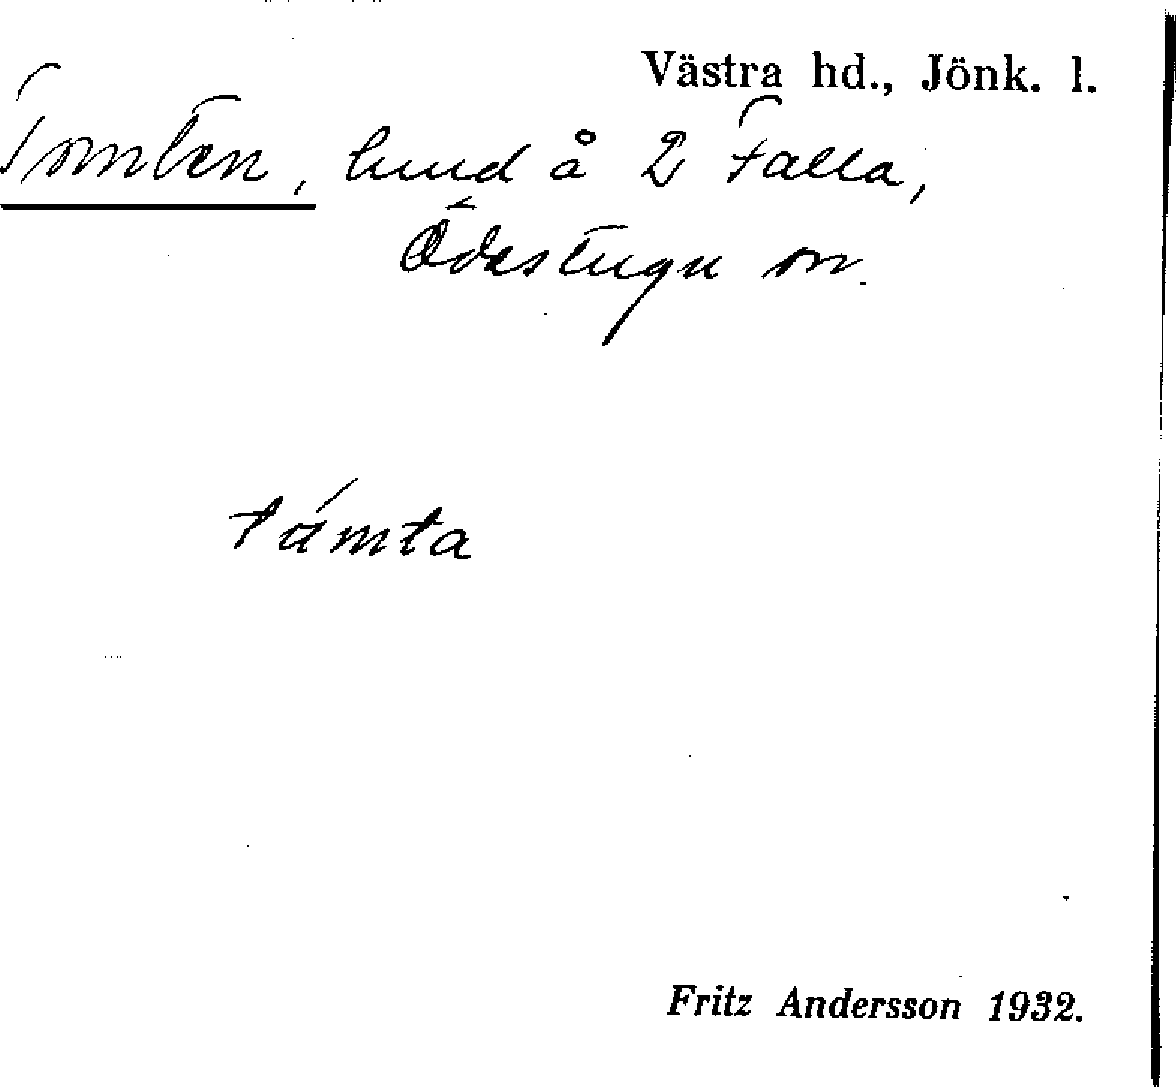 Västra hd., Jönk. l.
Tomten, lund å 2 Falla,
Ödestugu sn.
támta
Fritz Andersson 1932.